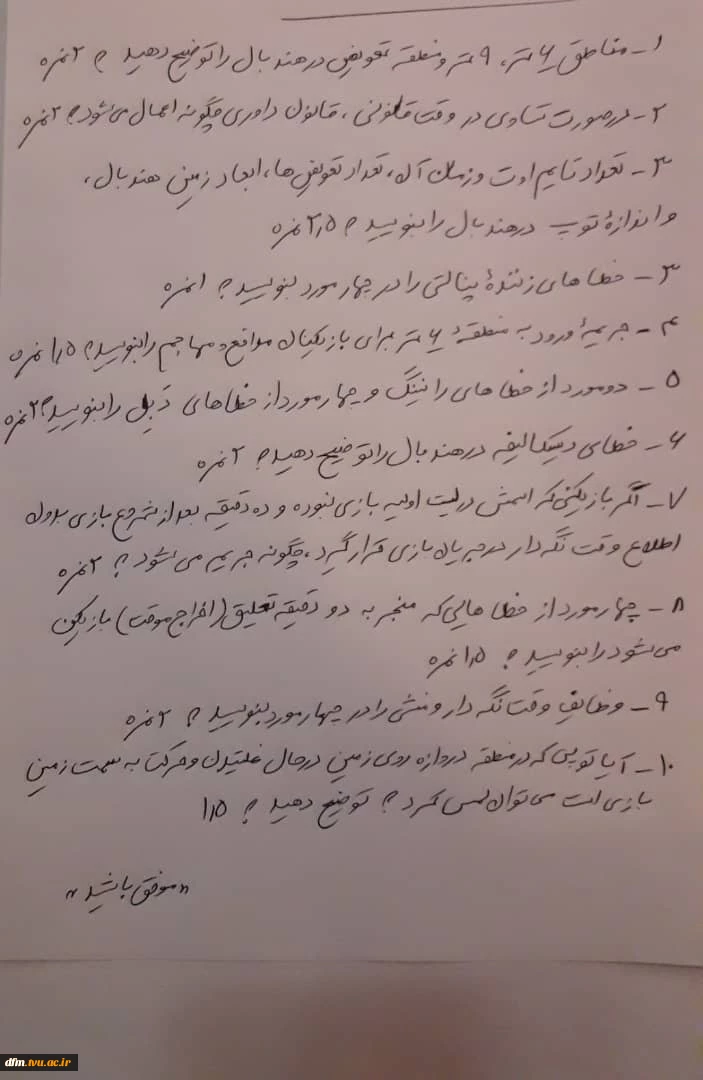 ۱- مناطق ۶ متر، ۹ متر و منطقه تعویض در هندبال را توضیح دهید ؟ ۲ نمره
۲- در صورت تساوی در وقت قانونی، قانون داوری چگونه اعمال می‌شود؟ ۲ نمره
۳- تعداد تایم اوت و زمان آن، تعداد تعویض‌ها، ابعاد زمین هندبال،
و اندازهٔ توپ در هندبال را بنویسید ؟ ۲٫۵ نمره
۳- خطاهای زنندهٔ پنالتی را در چهار مورد بنویسید ؟ ۱ نمره
۴- جریمهٔ ورود به منطقهٔ ۶ متر برای بازیکنان مدافع و مهاجم را بنویسید؟ ۱٫۵ نمره
۵- دو مورد از خطاهای رانینگ و چهار مورد از خطاهای دَبِل را بنویسید؟ ۲ نمره
۶- خطای دیسکالیفه در هندبال را توضیح دهید ؟ ۲ نمره
۷- اگر بازیکنی که اسمش در لیست اولیه بازی نبوده و ده دقیقه بعد از شروع بازی بدون
اطلاع وقت نگه دار در جریان بازی قرار گیرد، چگونه جریمه می‌شود ؟ ۲ نمره
۸- چهار مورد از خطاهایی که منجر به دو دقیقه تعلیق (اخراج موقت) بازیکن
می‌شود را بنویسید ؟ ۱٫۵ نمره
۹- وظایف وقت نگه دار و منشی را در چهار مورد بنویسید ؟ ۲ نمره
۱۰- آیا توپی که در منطقه دروازه روی زمین در حال غلتیدن و حرکت به سمت زمین
بازی است می‌توان لمس کرد ؟ توضیح دهید ؟ ۱٫۵
"موفق باشید"
dfm.tvu.ac.ir